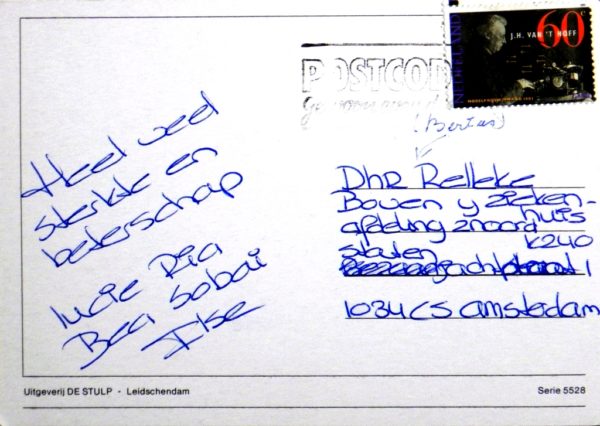 60 c
J.H. VAN 'T HOFF
NEDERLAND
POSTCOD
(Bertus)
Heel veel
sterkte en
beterschap
lucie Ria
Bea Sobai
Ilse
Dhr Relleke
Boven y zieken-
huis
afdeling 2noord
K240
staten jachtstraat 1
1034 CS amsterdam
Uitgeverij DE STULP - Leidschendam
Serie 5528